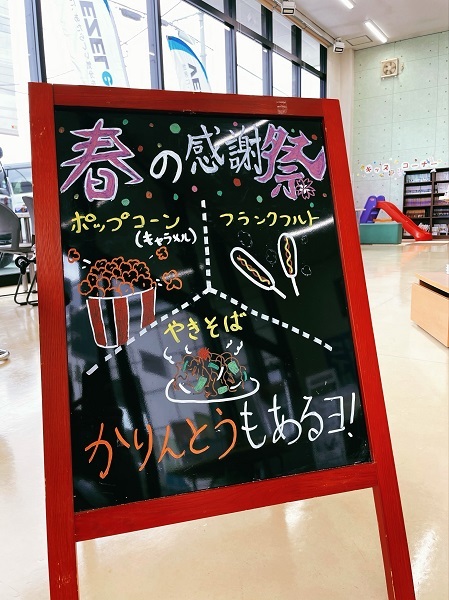 春の感謝祭
ポップコーン
(キャラメル)
フランクフルト
やきそば
かりんとうもあるヨ!
キッズコーナー